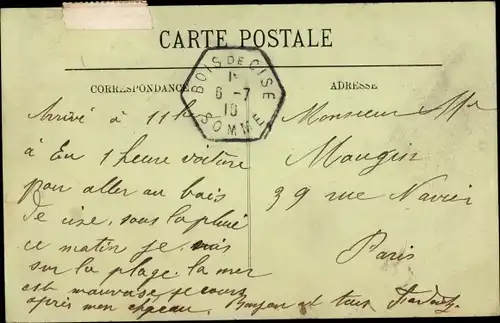 CARTE POSTALE
CORRESPONDANCE
ADRESSE
BOIS DE CISE
6 -7
10
SOMME
Arrivé à 11h
à Eu 1 heure voiture
pour aller au bois
de cise, sous la pluie
ce matin je suis
sur la plage. la mer
est mauvaise je cours
après mon chapeau. Bonjour à tous
Monsieur
Mougin
39 rue Navier
Paris